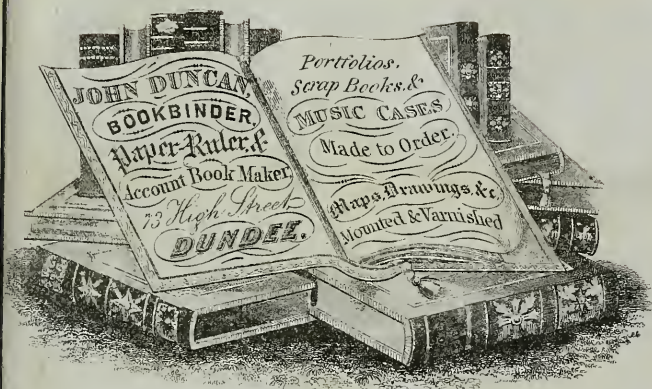 JOHN DUNCAN,
BOOKBINDER,
Paper-Ruler, &
Account Book Maker,
73 High Street
DUNDEE.
Portfolios,
Scrap Books, &
MUSIC CASES
Made to Order.
Maps, Drawings, &c.
Mounted & Varnished